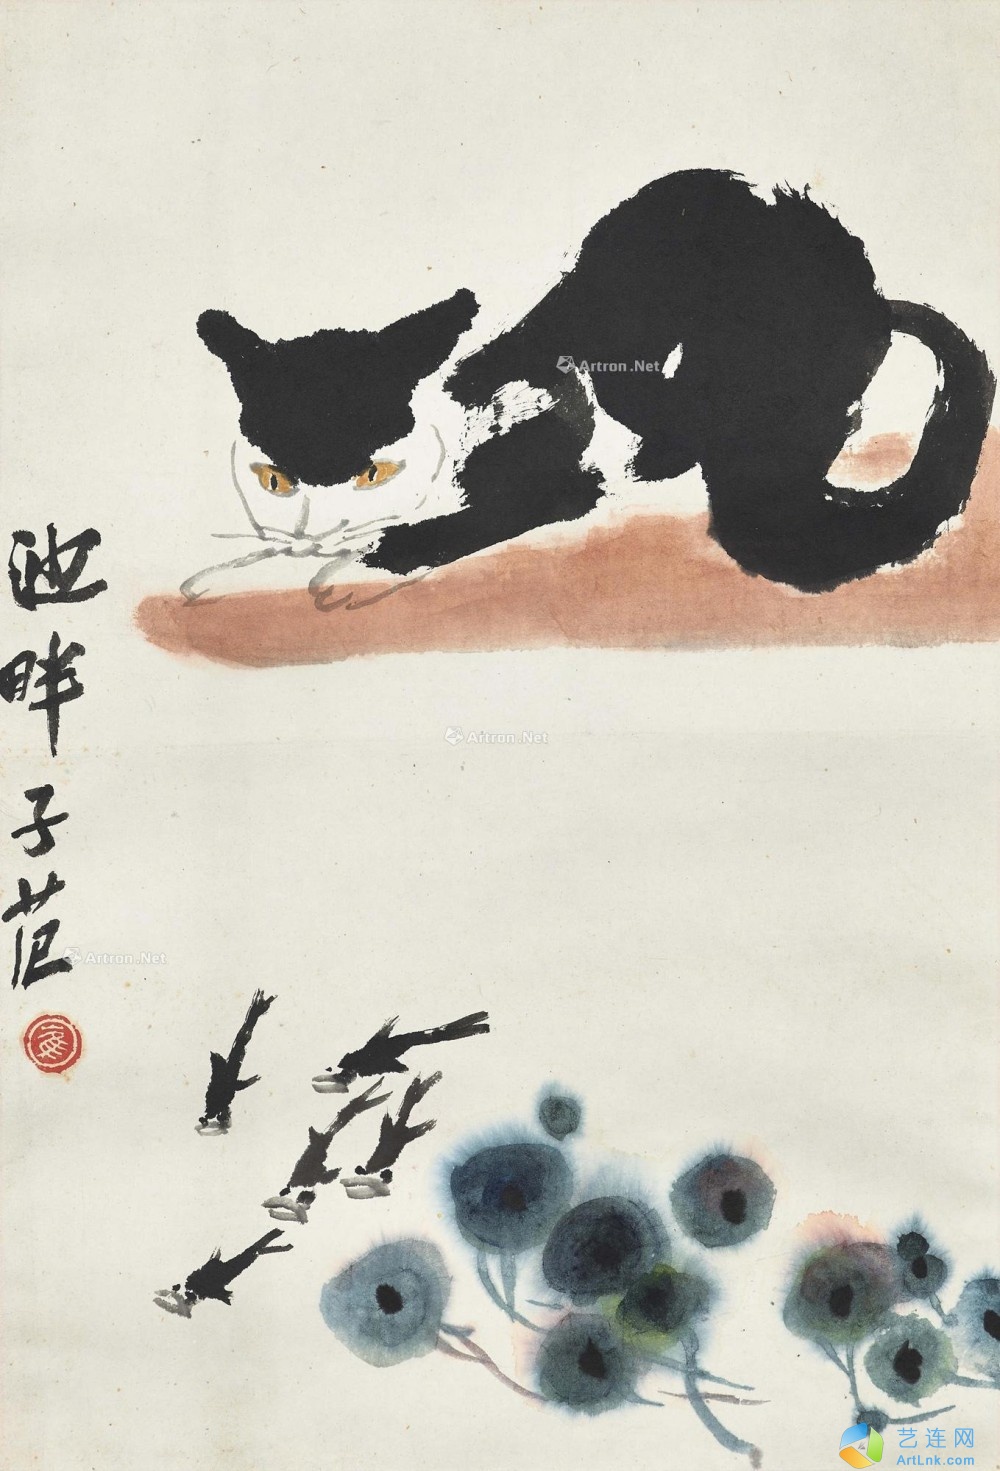 池畔子范
Artron.Net
Artron.Net
Artron.Net
艺连网
ArtLnk.com